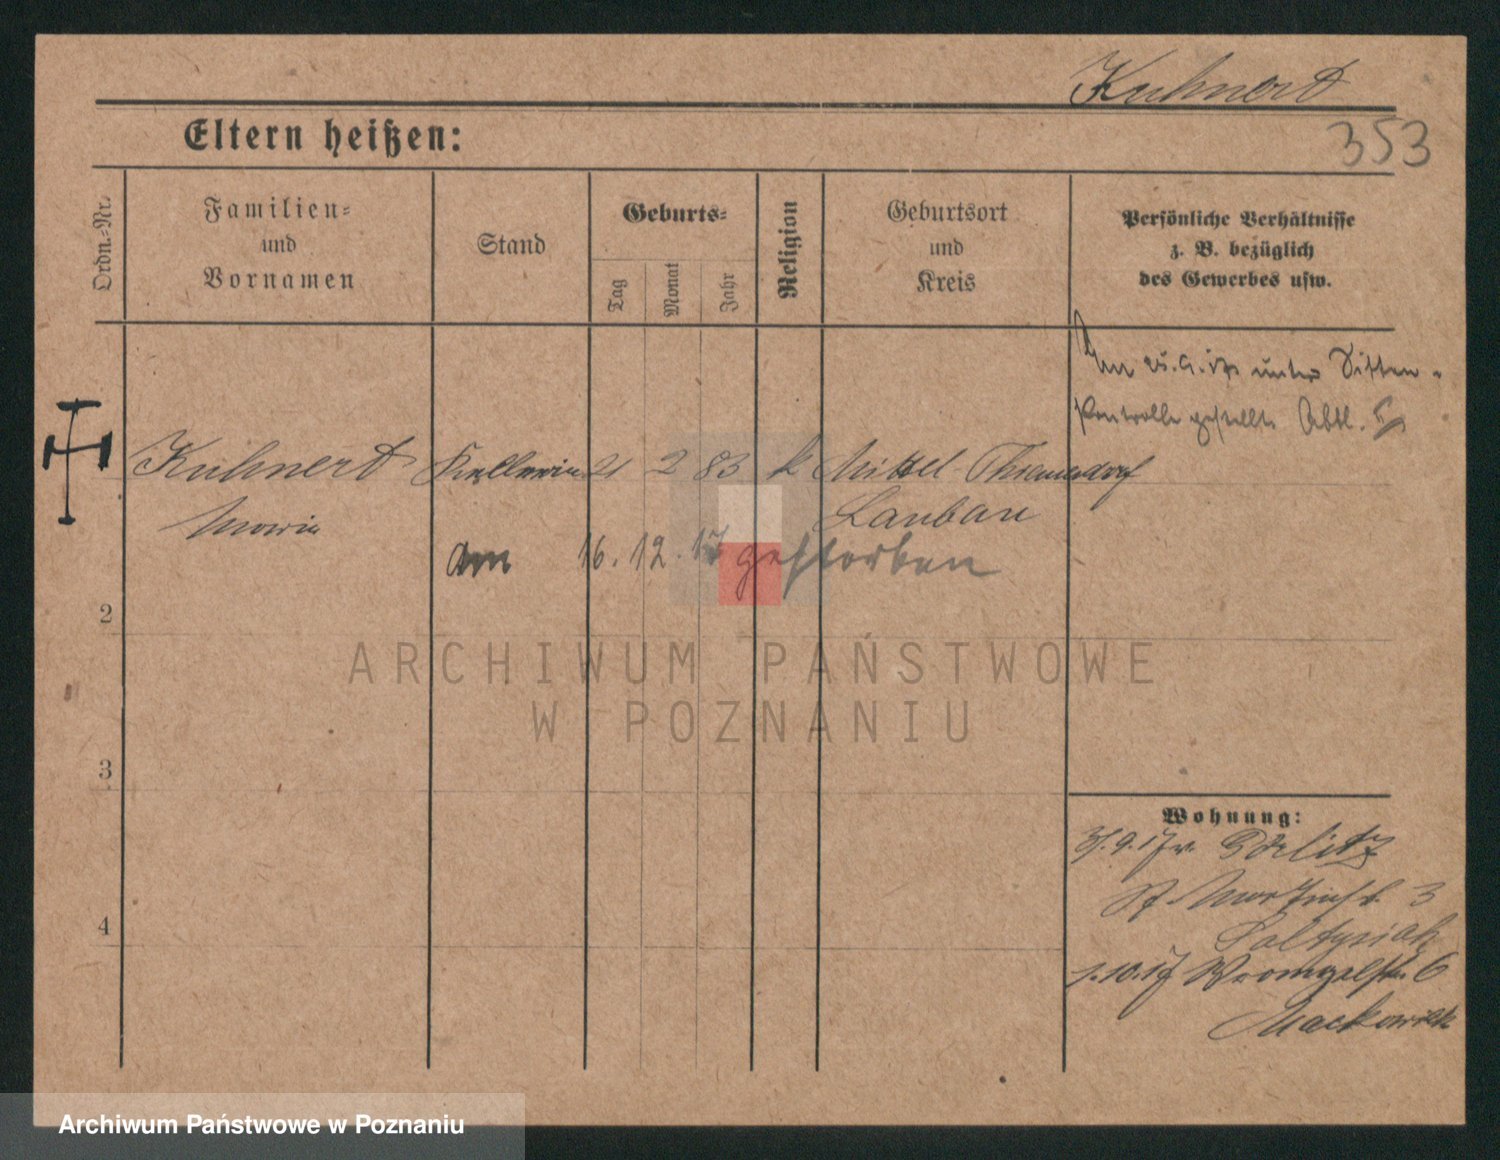 Kuhnert
353
Eltern heißen:
Ordn.-Nr.
Familien-
und
Vornamen
Stand
Geburts-
Tag
Monat
Jahr
Religion
Geburtsort
und
Kreis
Persönliche Verhältnisse
z. B. bezüglich
des Gewerbes usw.
unter Sitten-
kontrolle gestellt. Abtl.
Kuhnert Kellnerin 21 2 83 k Mittel-Thiemendorf
Maria
Lauban
am 16.12.17 gestorben
2
3
4
Wohnung:
9.17 v. Görlitz
St. Martinstr. 3
Saltysiak
1.10.17 Wrangelstr. 6
Mackowiak
ARCHIWUM PAŃSTWOWE
W POZNANIU
Archiwum Państwowe w Poznaniu